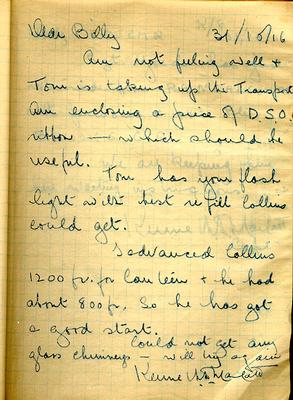 Dear Billy 31/10/16
Am not feeling well &
Tom is taking up the Transport
Am enclosing a piece of D.S.O.
ribbon — which should be
useful.
Tom has your flash
light with best refill Collins
could get.
I advanced Collins
1200 fr. for Canteen & he had
about 800 fr. So he has got
a good start.
Could not get any
glass chimneys — will try again